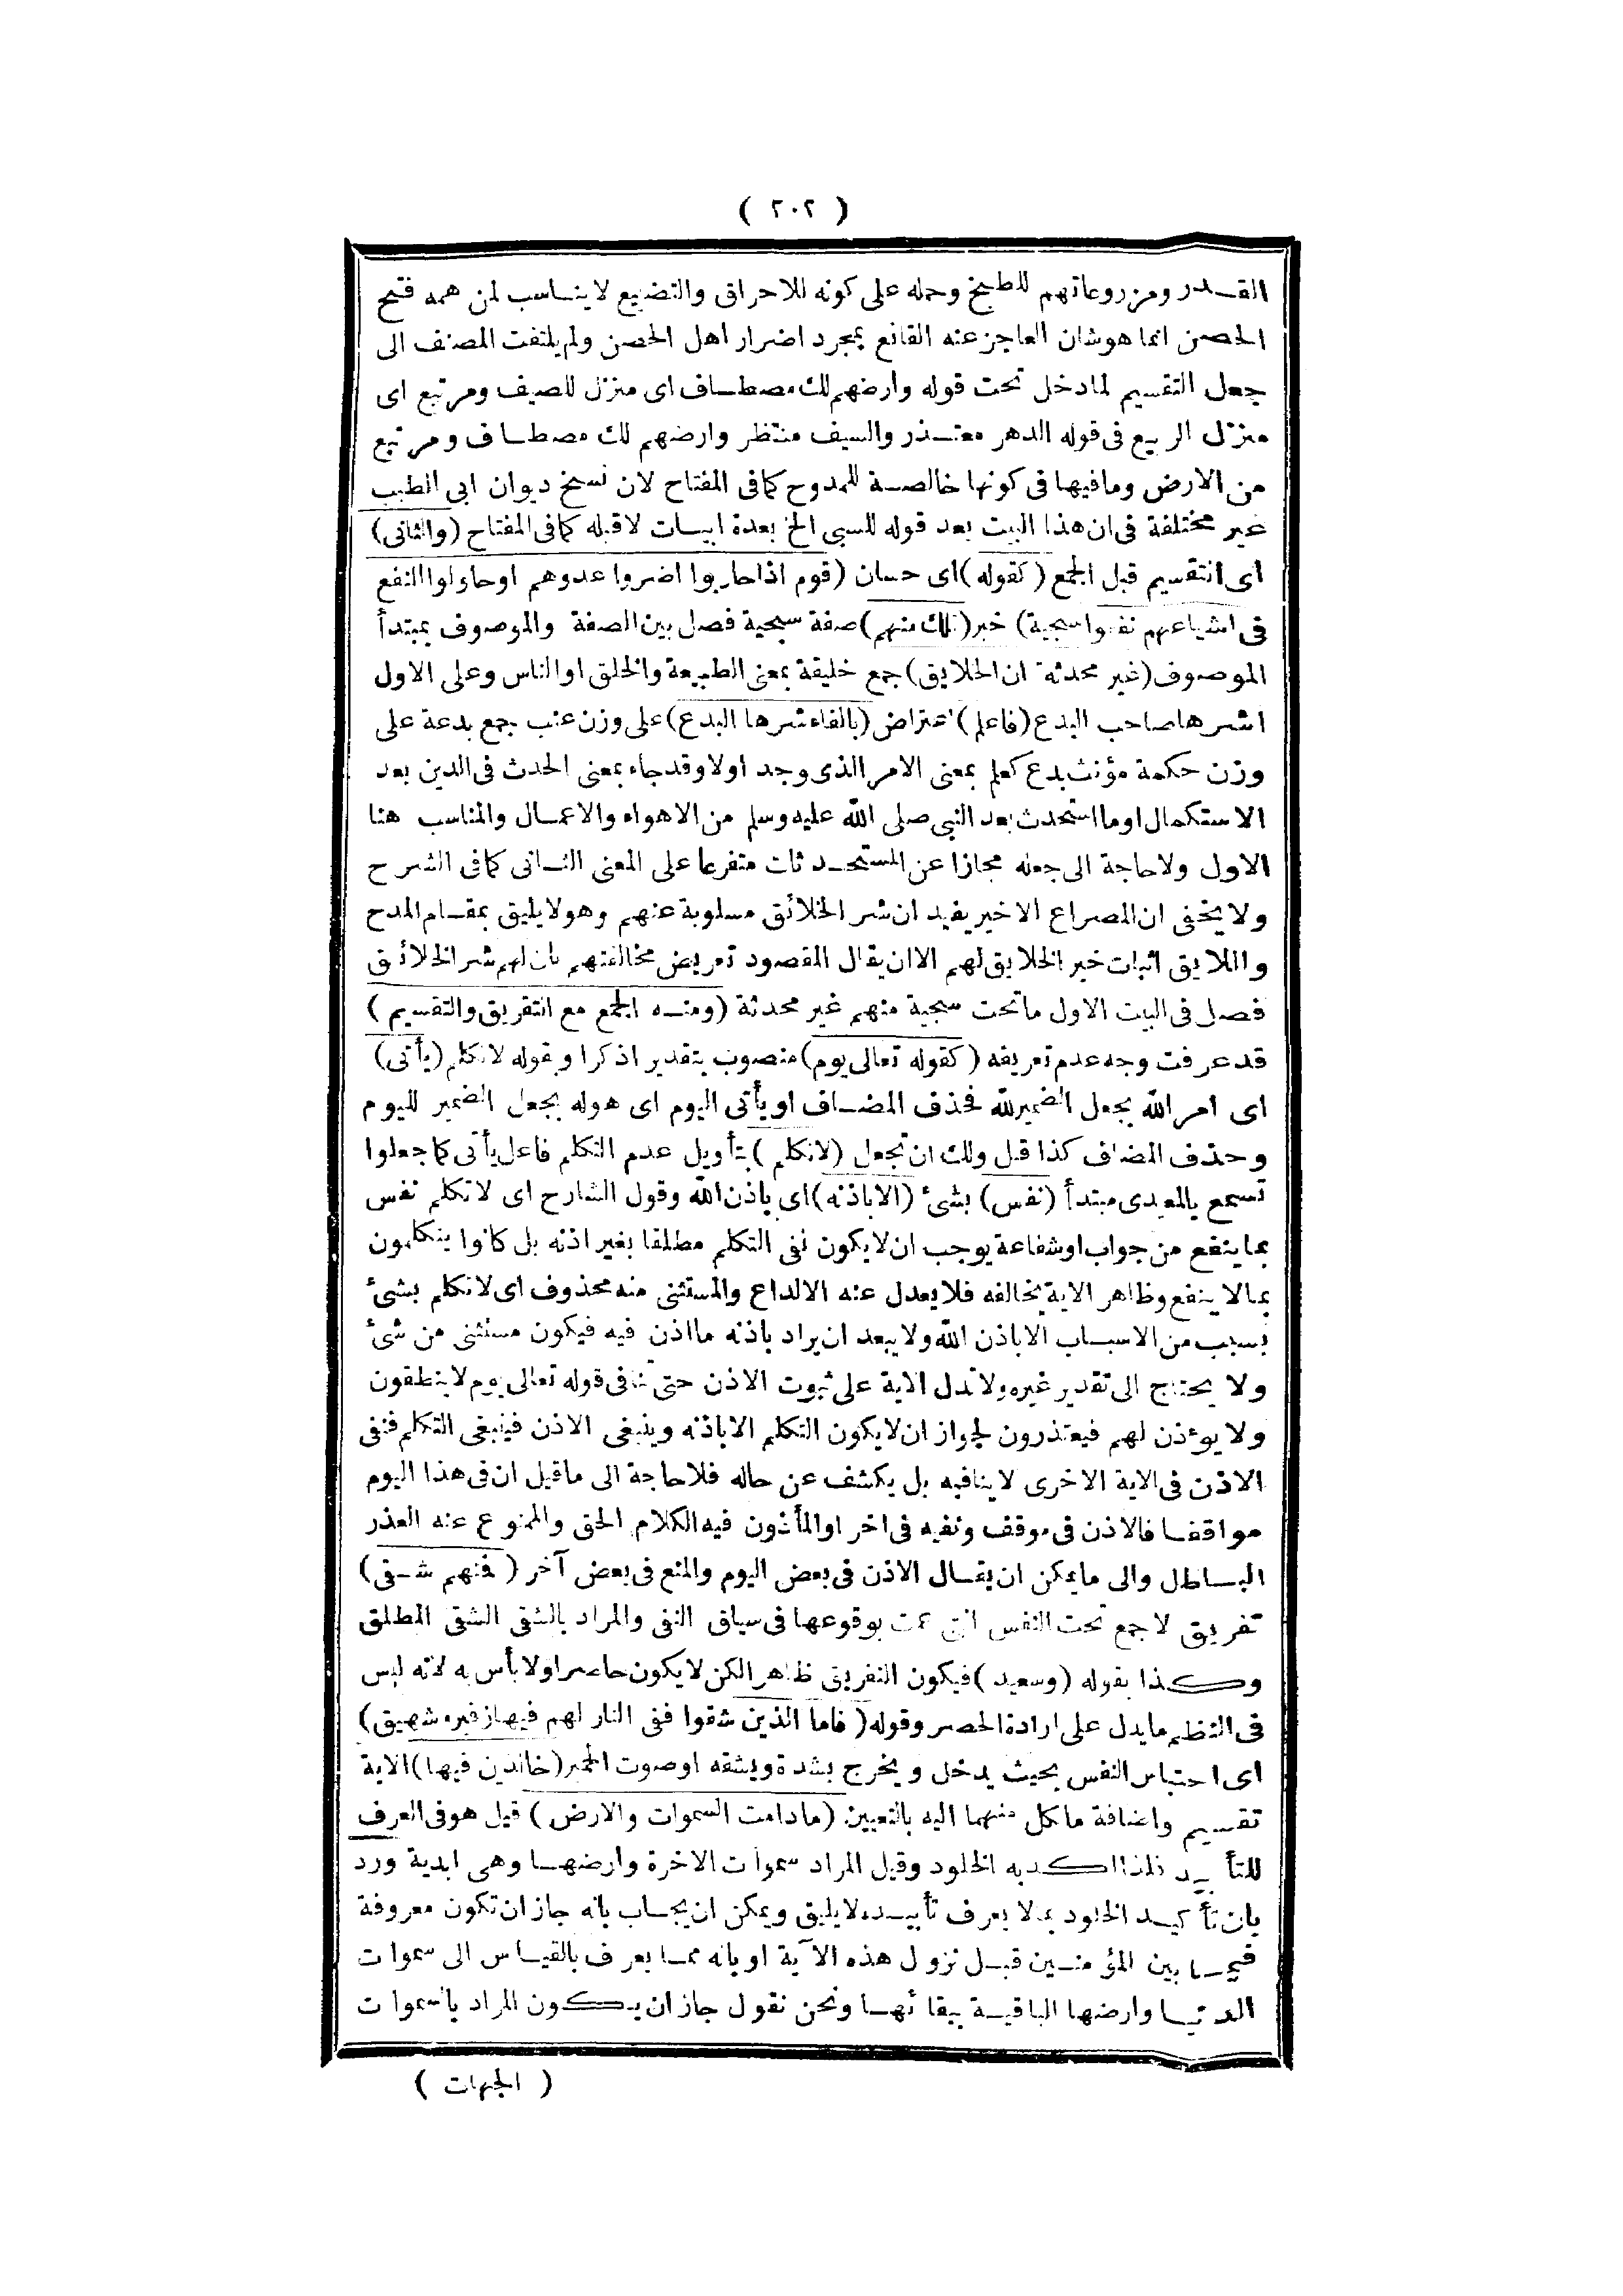 ( ٢٠٢ )
القدر ومزروعاتهم للطبخ وحمله على كونه للاحراق والتضييع لايناسب لمن همه فتح
الحصن انما هوشان العاجز عنه القانع بمجرد اضرار اهل الحصن ولم يلتفت المصنف الى
جعل التقسيم لمادخل تحت قوله وارضهم لك مصطاف اى منزل للصيف ومرتبع اى
منزل الربيع فى قوله الدهر معتذر والسيف منتظر وارضهم لك مصطاف ومرتبع
من الارض ومافيها فى كونها خالصة للمدوح كمافى المفتاح لان نسخ ديوان ابى الطيب
غير مختلفة فى ان هذا البيت بعد قوله للسبى الخ بعدة ابيات لاقبله كمافى المفتاح (والثانى)
اى التقسيم قبل الجمع (كقوله) اى حسان (قوم اذا حاربوا اضروا عدوهم اوحاولوا النفع
فى اشياعهم نفعوا سجية) خبر (تلك منهم) صفة سجية فصل بين الصفة والموصوف بمبتدأ
الموصوف (غير محدثة ان الخلايق) جمع خليقة بمعنى الطبيعة والخلق اوالناس وعلى الاول
اشرها صاحب البدع (فاعلم) اعتراض (بالفاء شرها البدع) على وزن عنب جمع بدعة على
وزن حكمة مؤنث بدع كعلم بمعنى الامر الذى وجد اولا وقدجاء بمعنى الحدث فى الدين بعد
الاستكمال اوما استحدث بعد النبى صلى الله عليه وسلم من الاهواء والاعمال والمناسب هنا
الاول ولاحاجة الى جعله مجازا عن المستحدثات متفرعا على المعنى الثانى كمافى الشرح
ولا يخفى ان المصراع الاخير يفيد ان شر الخلائق مسلوبة عنهم وهو لايليق بمقام المدح
واللايق اثبات خير الخلايق لهم الا ان يقال المقصود تعريض مخالفتهم بان لهم شر الخلائق
فصل فى البيت الاول ماتحت سجية منهم غير محدثة (ومنه الجمع مع التفريق والتقسيم)
قدعرفت وجه عدم تعريفه (كقوله تعالى يوم) منصوب بتقدير اذكر او بقوله لاتكلم (يأتى)
اى امر الله بجعل الضمير لله فحذف المضاف او يأتى اليوم اى هوله بجعل الضمير لليوم
وحذف المضاف كذا قيل ولك ان تجعل (لاتكلم) بتأويل عدم التكلم فاعل يأتى كما جعلوا
تسمع بالمعيدى مبتدأ (نفس) بشئ (الا باذنه) اى باذن الله وقول الشارح اى لاتكلم نفس
بما ينفع من جواب اوشفاعة يوجب ان لايكون نفى التكلم مطلقا بغير اذنه بل كانوا يتكلمون
بمالا ينفع وظاهر الاية يخالفه فلا يعدل عنه الا لداع والمستثنى منه محذوف اى لاتكلم بشئ
بسبب من الاسباب الا باذن الله ولا يبعد ان يراد باذنه ما اذن فيه فيكون مستثنى من شئ
ولا يحتاج الى تقدير غيره ولاتدل الاية على ثبوت الاذن حتى تنافى قوله تعالى يوم لاينطقون
ولا يوءذن لهم فيعتذرون لجواز ان لايكون التكلم الا باذنه وينبغى الاذن فينبغى التكلم فنفى
الاذن فى الاية الاخرى لاينافيه بل يكشف عن حاله فلاحاجة الى ماقيل ان فى هذا اليوم
مواقفا فالاذن فى موقف ونفيه فى اخر اوالمأذون فيه الكلام الحق والممنوع عنه العذر
الباطل والى مايمكن ان يقال الاذن فى بعض اليوم والمنع فى بعض آخر (فمنهم شقى)
تفريق لاجمع تحت النفس التى عمت بوقوعها فى سياق النفى والمراد بالشقى الشقى المطلق
وكذا بقوله (وسعيد) فيكون التفريق ظاهرا لكن لايكون حاصرا ولا بأس به لانه ليس
فى النظم مايدل على ارادة الحصر وقوله (فاما الذين شقوا ففى النار لهم فيها زفير وشهيق)
اى احتباس النفس بحيث يدخل ويخرج بشدة ويشقه اوصوت الحمير (خالدين فيها) الاية
تقسيم واضافة مالكل منهما اليه بالتعيين (مادامت السموات والارض) قيل هو فى العرف
للتأبيد فلذا اكد به الخلود وقيل المراد سموات الاخرة وارضها وهى ابدية ورد
بان تأكيد الخلود بما لا يعرف تأبيده لايليق ويمكن ان يجاب بانه جاز ان تكون معروفة
فيما بين المؤمنين قبل نزول هذه الآية اوبانه مما يعرف بالقياس الى سموات
الدنيا وارضها الباقية ببقائها ونحن نقول جاز ان يكون المراد بالسموات
( الجهات )